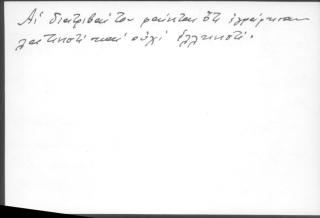 Αἱ διατριβαὶ του φαίνεται ὅτι ἐγράφησαν
λατινιστὶ καὶ οὐχὶ ἑλληνιστί.